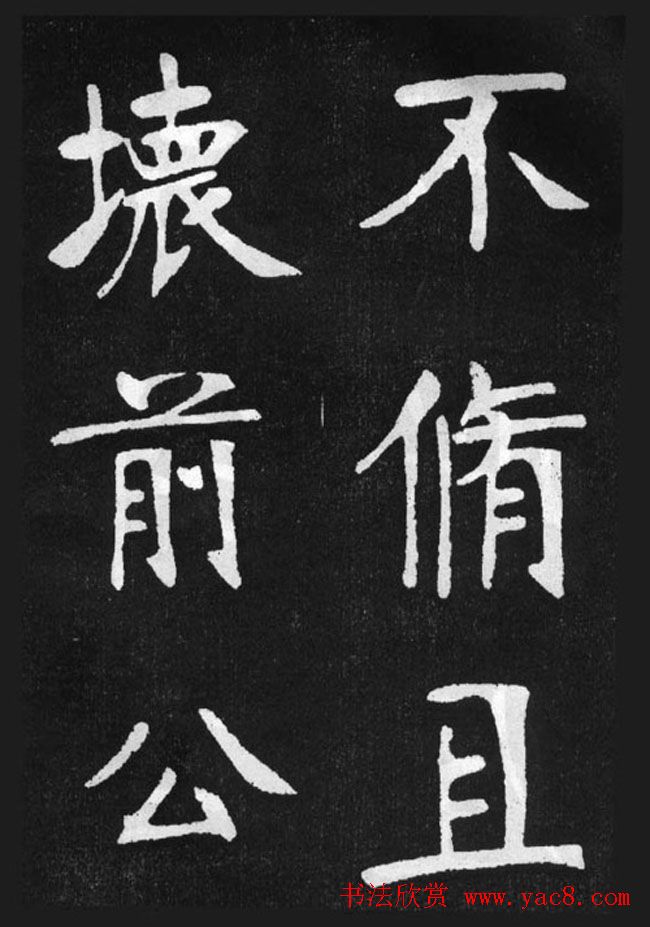 不脩且
壞前公
书法欣赏 www.yac8.com